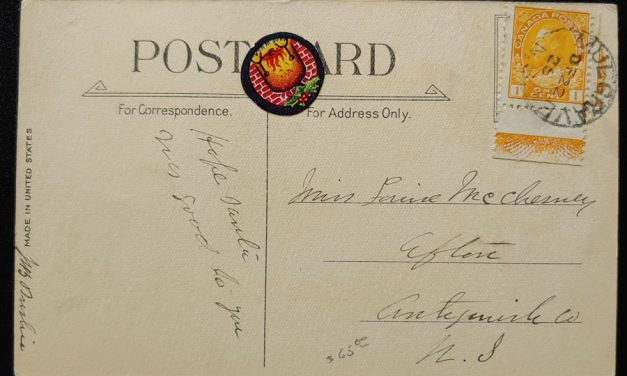 POST CARD
For Correspondence.
For Address Only.
CANADA POSTAGE
1 ONE CENT 1
MADE IN UNITED STATES
Hope Santa
was good to you
Miss Louise McChesney
Afton
Antigonish Co
N. S
$65.00